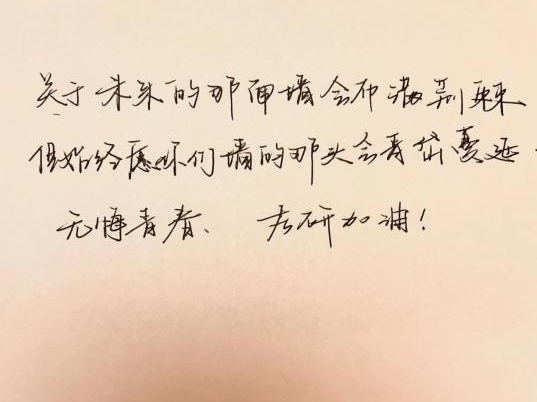 关于未来的那面墙会布满荆棘
但始终愿你们墙的那头会青苔蔓延
无悔青春、 考研加油！